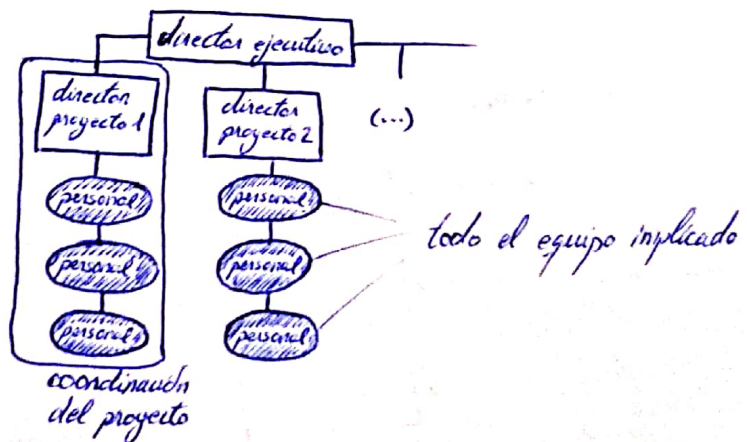 director ejecutivo
director
proyecto 1
director
proyecto 2
(...)
personal
personal
personal
personal
personal
personal
todo el equipo implicado
coordinación
del proyecto